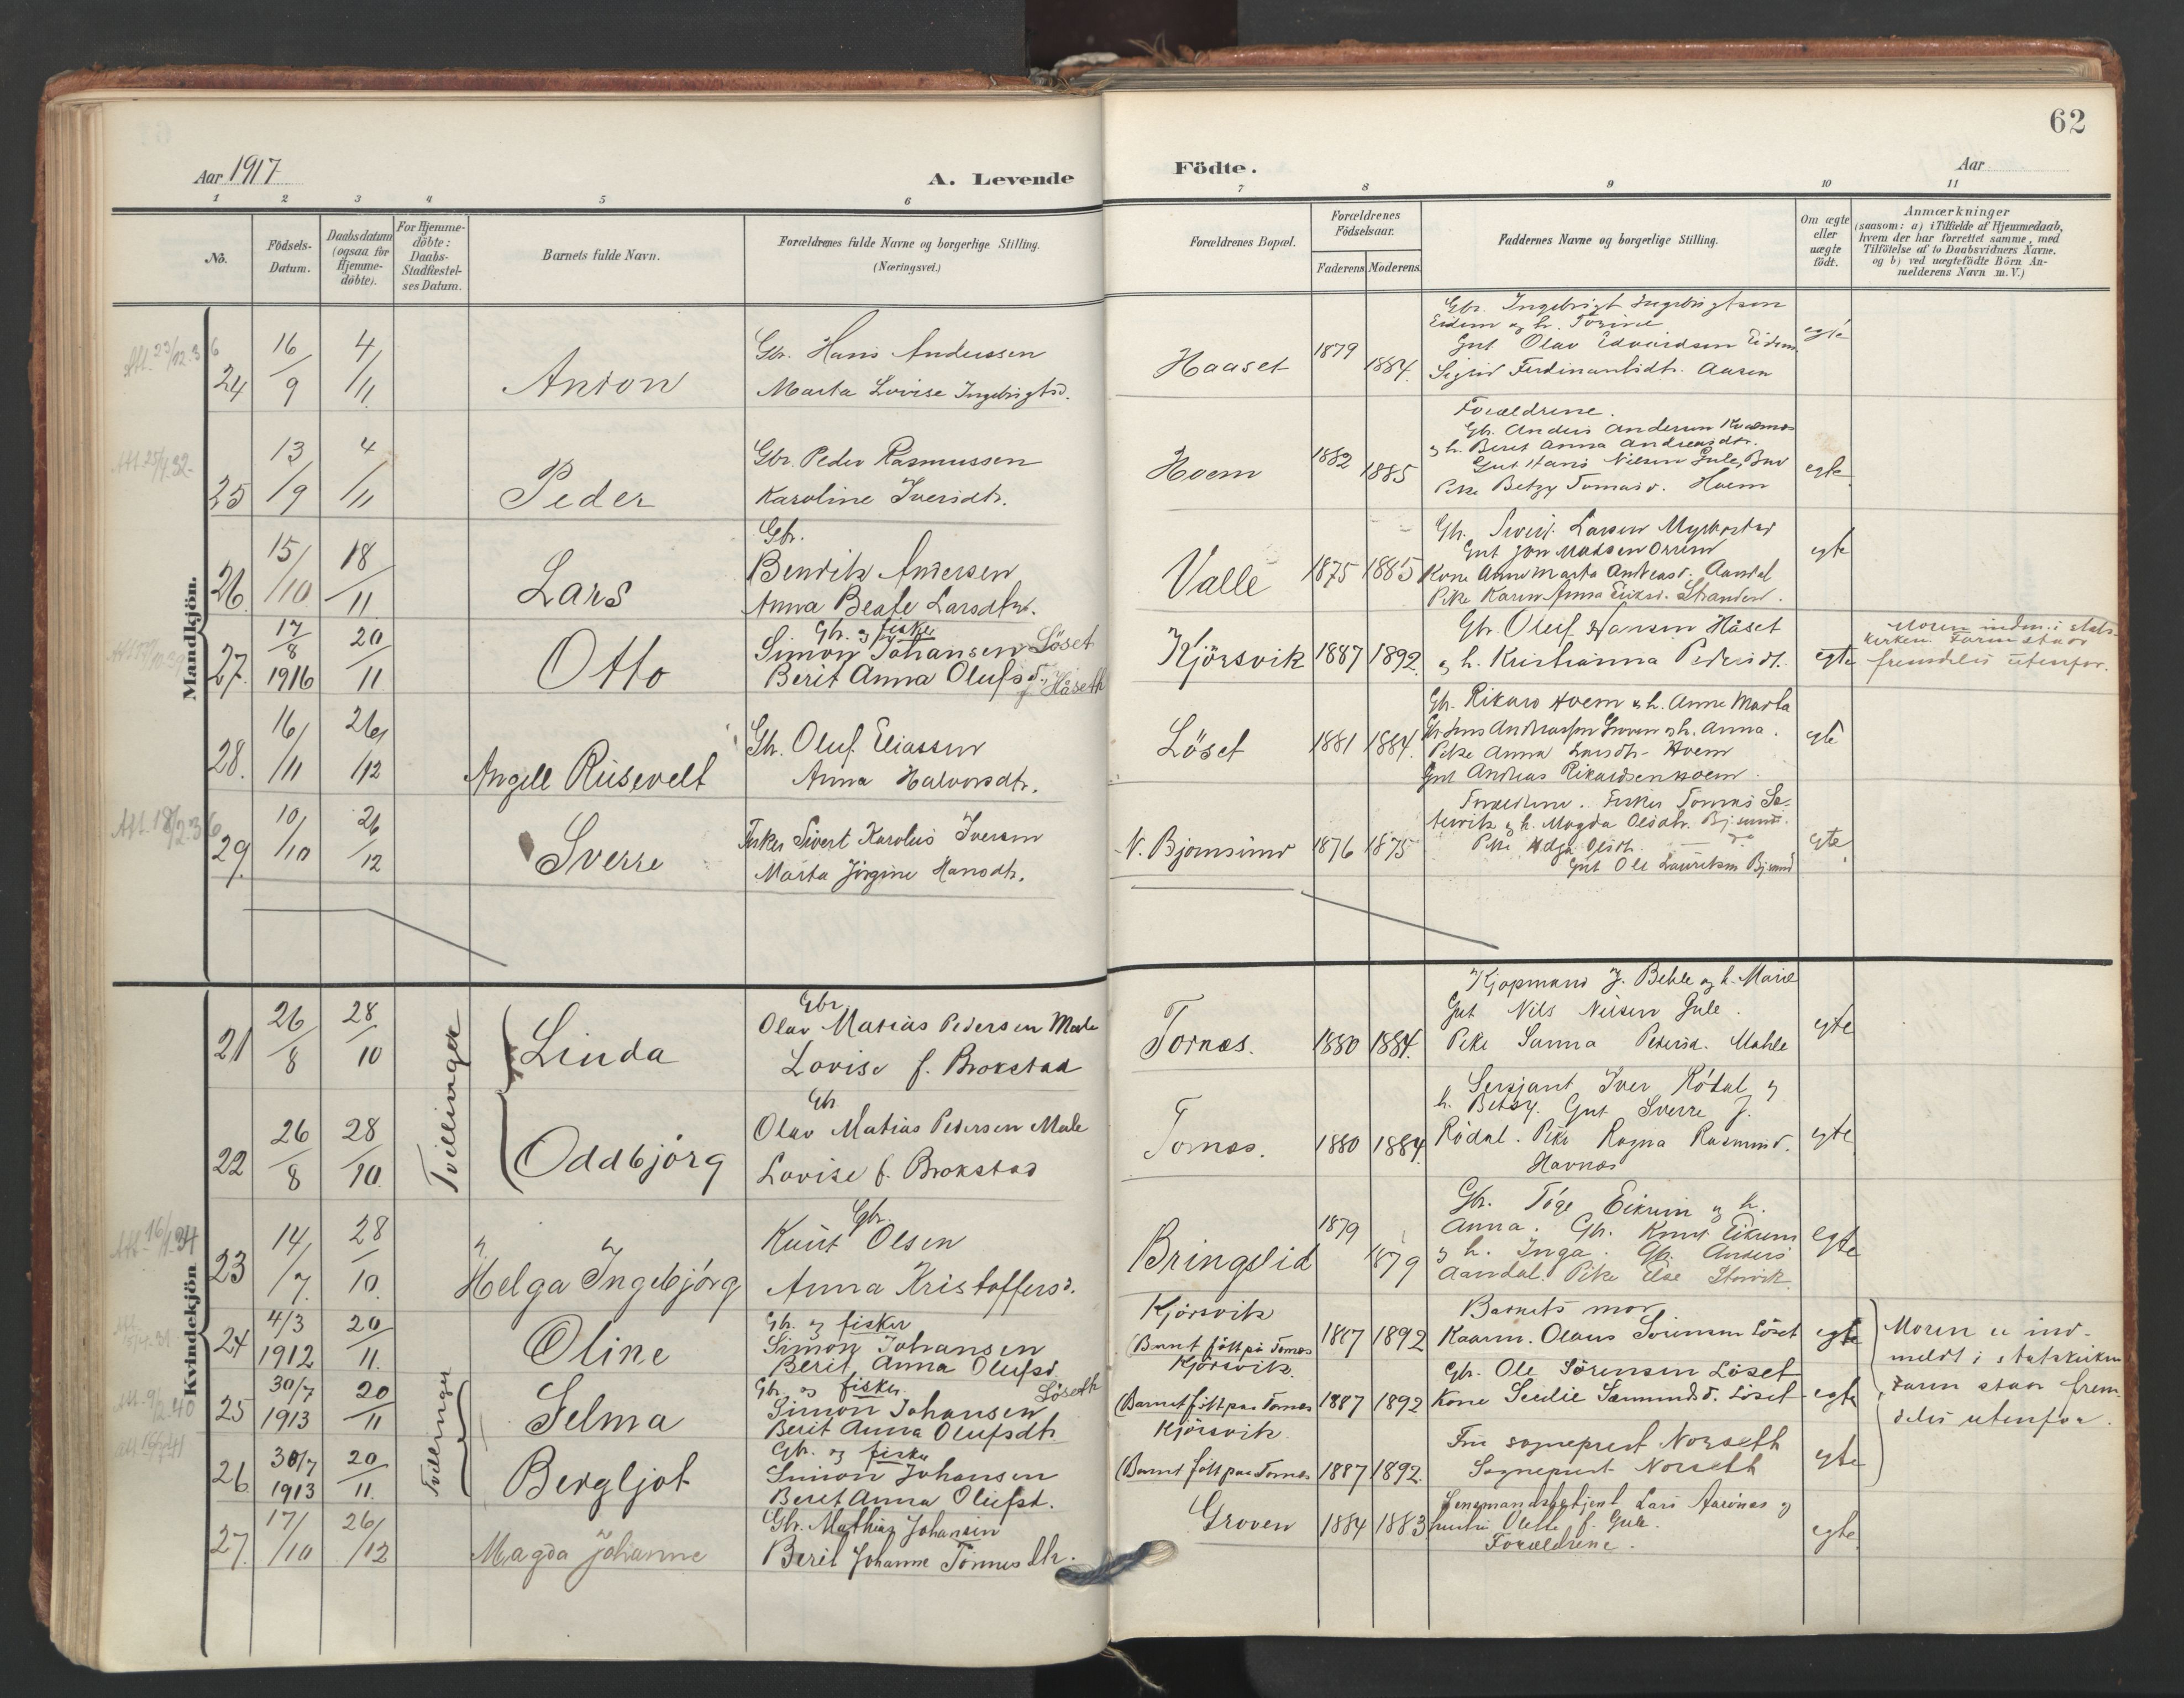 62
Aar 1917
A. Levende
Födte.
Aar
1 2 3 4 5 6 7 8 9 10 11
No.
Födsels-
Datum.
Daabsdatum
(ogsaa for
Hjemme-
döbte).
For Hjemme-
döbte:
Daabs-
Stadfæstel-
ses Datum.
Barnets fulde Navn.
Forældrenes fulde Navne og borgerlige Stilling.
(Næringsvei.)
Forældrenes Bopæl.
Forældrenes
Fødselsaar.
Faderens Moderens
Faddernes Navne og borgerlige Stilling.
Om ægte
eller
uægte
födt.
Anmærkninger
(saasom: a) i Tilfælde af Hjemmedaab,
hvem der har forrettet samme, med
Tilföielse af to Daabsvidners Navne.
og b) ved uægtefödte Börn An-
melderens Navn m. V.)
Mandkjön.
24
16/9
4/11
Anton
Gbr. Hans Anderssen
Marta Lovise Ingebrigtsd.
Haaset
1879
1884.
Gbr. Ingebrigt Ingebrigtsen
Eidem og h.
Gut Olav Edvardsen Eidem
Sigrid Ferdinantsdtr. Aasen
egte
25
13/9
4/11
Peder
Gbr. Peder Rasmussen
Karoline Iversdtr.
Hoem
1882
1885
Forældrene.
Gbr. Anders Andersen
og h. Beret Anna Andreasdtr.
Gut Hans Nilsen Gule, Bud
Pike Betzy Tomasd. Hoem
egte
26
15/10
18/11
Lars
Gbr.
Bendik Andersen
Anna Beate Larsdtr.
Valle
1875
1885
Gbr. Sivert Larsen Myrbostad
Gut Jon Madsen
Kone Anne Marta Andreasd. Aandal
Pike Karen Anna Eriksd. Stranden.
egte
27.
17/8
1916
20/11
Otto
Gbr. og fisker
Simon Johansen Löset
Berit Anna Olufsd., f. Håseth
Kjörsvik
1887
1892.
Gbr. Oluf Hansen Håset
og h. Kristianna Pedersdt.
egte
Moren indm. i stats-
kirken. Faren staar
fremdeles utenfor.
28.
16/11
26/12
Angell Rusevelt
Gbr. Oluf Eliassen
Anna Halvorsdtr.
Löset
1881
1884.
Gbr. Rikard Hoem og h. Anne Marta
Gbr. Jens Andreassen Groven og h. Anna.
Pike Anna Larsdtr. Hoem
Gut Andreas Rikardsen Hoem.
egte
29.
10/10
26/12
Sverre
Fisker Sivert Karolus Iversen
Marta Jörgine Hansdtr.
N. Bjørnsund
1876
1875
Forældrene. Fisker Tomas
og h. Magda Olsdtr. Bj.sund.
Pike Olsdtr.
Gut Ole Lauritsen Bj.sund
egte.
Kvindekjön
21
26/8
28/10
Tvillinger
Linda
Gbr.
Olav Matias Pedersen Male
Lovise f. Brokstad
Tornæs.
1880
1884.
Kjøpmand J. Behle og h. Marie
Gut Nils Nilsen Gule.
Pike Sanna Pedersd. Mahle
egte
22
26/8
28/10
Oddbjörg
Gbr
Olav Matias Pedersen Male
Lovise f. Brokstad
Tornæs.
1880
1884.
Sersjant Iver Rödal og
h. Betsy. Gut Sverre J.
Rödal. Pike Ragna Rasmusd.
Havnæs
egte
23
14/7
28/10.
Helga Ingebjörg
Gbr.
Knut Olsen
Anna Kristoffersd.
Bringslid
1879
1879
Gbr. Töge Eikrem og h.
Anna. Gbr. Knut Eikrem
og h. Inga. Gbr. Anders
Aandal. Pike Else Storvik
egte
24
4/3
1912
20/11.
Oline
Gbr. og fisker
Simon Johansen
Berit Anna Olufsd.
Kjörsvik
(Barnet födt på Tornes
1887
1892
Barnets mor
Kaarm. Olaus Sörensen Löset
egte
Moren er ind-
meldt i statskirken
Faren staar frem-
deles utenfor.
25
30/7
1913
20/11
Tvillinger
Selma
Gbr. og fisker Löseth
Simon Johansen
Berit Anna Olufsdtr.
Kjörsvik.
(Barnet födt paa Tornes
1887
1892
Gbr. Ole Sörensen Löset
Kone Seselie Samundsd. Löset
egte
26
30/7
1913
20/11.
Bergljot
Gbr. og fisker
Simon Johansen
Beret Anna Olufsd.
Kjörsvik.
(Barnet födt paa Tornes
1887
1892.
Fru sogneprest Norseth
Sogneprest Norseth
egte
27.
17/10
26/12
Magda Johanne
Gbr. Mathias Johansen
Berit Johanne Tönnesdtr.
Groven
1884
1883
Lensmandsbetjent Lars Aarönes og
hustru Olette f. Gule.
Forældrene.
egte.